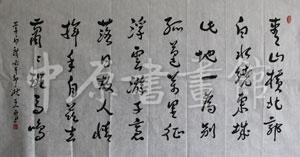 青山橫北郭
白水繞東城
此地一為別
孤蓬萬里征
浮雲游子意
落日故人情
揮手自茲去
蕭蕭班馬鳴
中原書畫館